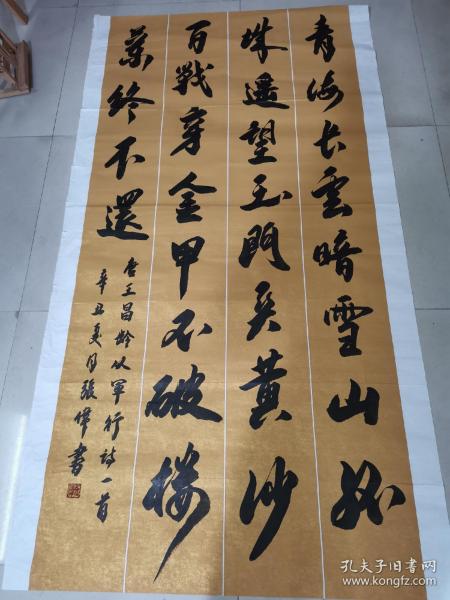 青海长雲暗雪山孤
城遥望玉門关黄沙
百戰穿金甲不破楼
蘭終不還
唐王昌龄从軍行詩一首
辛丑夏月張偉書
孔夫子旧书网
www.kongfz.com